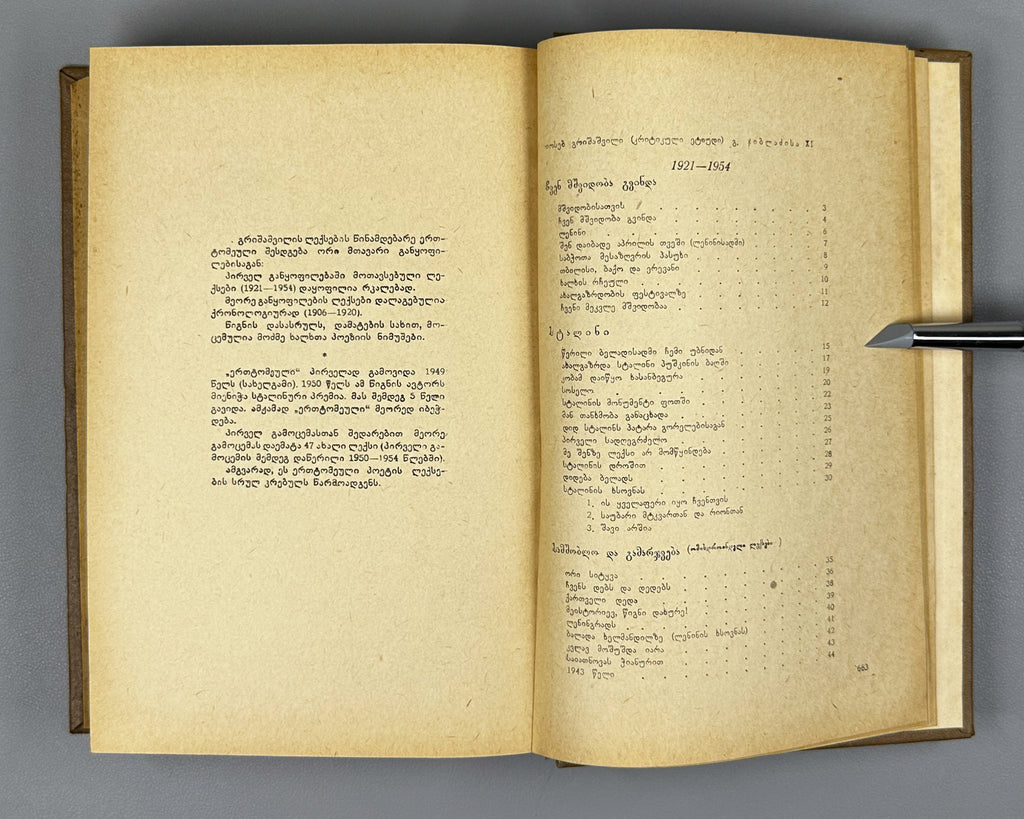 . გრიშაშვილის ლექსების წინამდებარე ერთ-
ტომეული შესდგება ორი მთავარი განყოფი-
ლებისაგან:
პირველ განყოფილებაში მოთავსებული ლე-
ქსები (1921—1954) დაყოფილია რკალებად.
მეორე განყოფილების ლექსები დალაგებულია
ქრონოლოგიურად (1906—1920).
წიგნის დასასრულს, დამატების სახით, მო-
ცემულია მოძმე ხალხთა პოეზიის ნიმუშები.
*
„ერთტომეული“ პირველად გამოვიდა 1949
წელს (სახელგამი). 1950 წელს ამ წიგნის ავტორს
მიენიჭა სტალინური პრემია. მას შემდეგ 5 წელი
გავიდა. ამჟამად „ერთტომეული“ მეორედ იბეჭ-
დება.
პირველ გამოცემასთან შედარებით მეორე
გამოცემას დაემატა 47 ახალი ლექსი (პირველი გა-
მოცემის შემდეგ დაწერილი 1950—1954 წლებში).
ამგვარად, ეს ერთტომეული პოეტის ლექსე-
ბის სრულ კრებულს წარმოადგენს.
იოსებ გრიშაშვილი (კრიტიკული ეტიუდი) გ. ჯიბლაძისა XI
1921—1954
ჩვენ მშვიდობა გვინდა
მშვიდობისათვის . . . . . . . 3
ჩვენ მშვიდობა გვინდა . . . . . . . 4
ლენინი . . . . . . . 6
შენ დაიბადე აპრილის თვეში (ლენინისადმი) . . . 7
საბჭოთა მესაზღვრის პასუხი . . . . . 8
თბილისი, ბაქო და ერევანი . . . . . 9
ხალხის რჩეული . . . . . . . 10
ახალგაზრდობის ფესტივალზე . . . . . 11
ჩვენი მეკვლე მშვიდობაა . . . . . . 12
სტალინი
წერილი ბელადისადმი ჩემი უბნიდან . . . . 15
ახალგაზრდა სტალინი პუშკინის ბაღში . . . . 17
კობამ დაიწყო ხასანბეგურა . . . . . 19
სოსელო . . . . . . . 20
სტალინის მონუმენტი ფოთში . . . . . 22
მან თანხმობა განაცხადა . . . . . 23
დიდ სტალინს პატარა გორელებისაგან . . . . 25
პირველი სადღეგრძელო . . . . . . 26
მე შენზე ლექსი არ მომწყინდება . . . . 27
სტალინის დროშით . . . . . . 28
დიდება ბელადს . . . . . . 29
სტალინის ხსოვნას . . . . . . 30
1. ის ყველაფერი იყო ჩვენთვის
2. საუბარი მტკვართან და რიონთან
3. შავი არშია
სამშობლო და გამარჯვება
ორი სიტყვა . . . . . . . 35
ჩვენს დებს და დედებს . . . . . . 36
ქართველი დედა . . . . . . 38
მეისტორიევ, წიგნი დახურე! . . . . . 39
ლენინგრადს . . . . . . . 40
ბალადა ხელმანდილზე (ლენინის ხსოვნას) . . . 41
კვლავ მოშუშდა იარა . . . . . . 42
საიათნოვას ჭიანურით . . . . . . 43
1943 წელი . . . . . . . 44
663